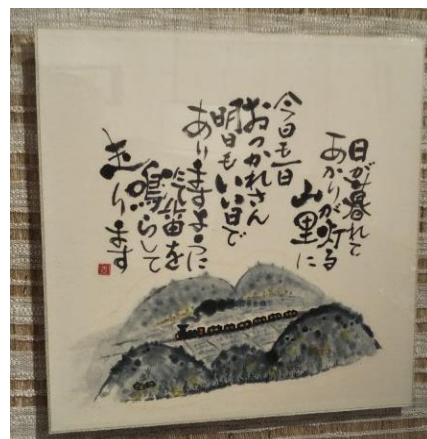 日が暮れて
あかりが灯る
山里に
今日も一日
おつかれさん
明日もいい日で
ありますように
汽笛を
鳴らして
走ります